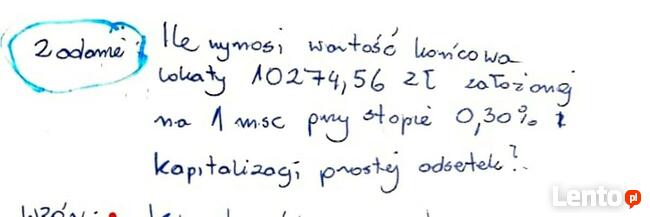 Zadanie: Ile wynosi wartość końcowa
lokaty 10274,56 zł założonej
na 1 msc przy stopie 0,30% i
kapitalizacji prostej odsetek?
Lento.pl